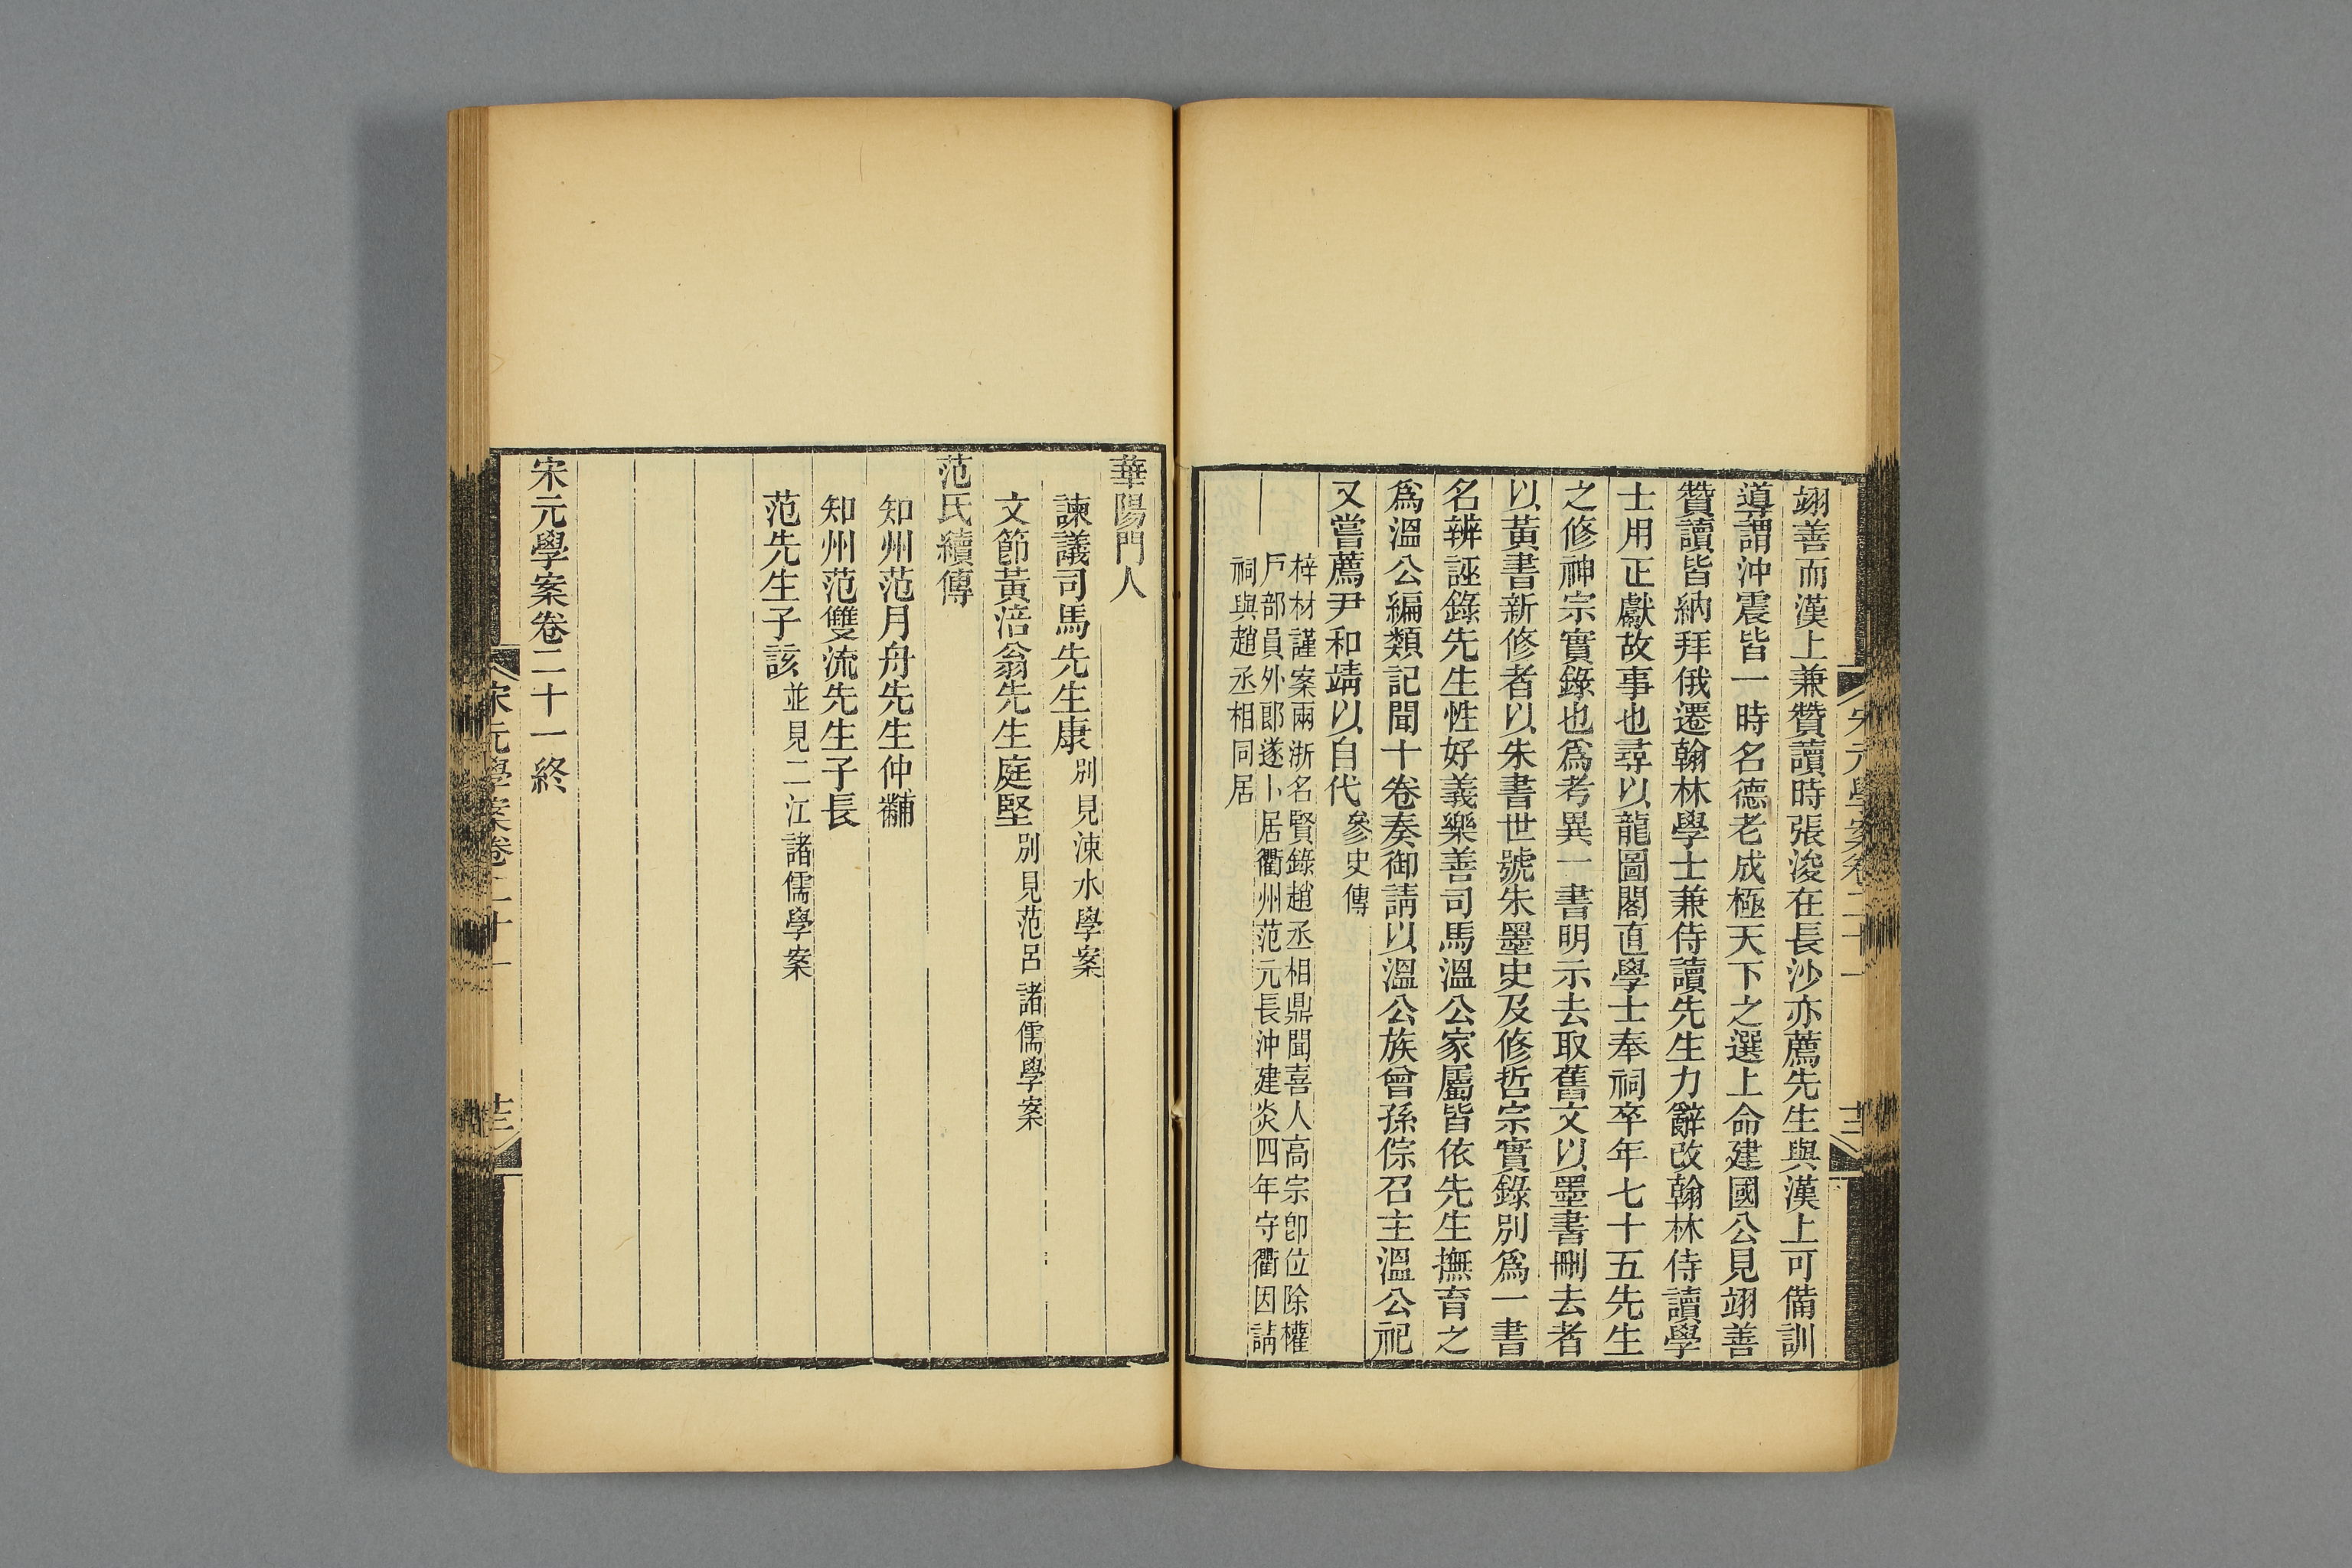 翊善而漢上兼贊讀時張浚在長沙亦薦先生與漢上可備訓
導謂沖震皆一時名德老成極天下之選上命建國公見翊善
贊讀皆納拜俄遷翰林學士兼侍讀先生力辭改翰林侍讀學
士用正獻故事也尋以龍圖閣直學士奉祠卒年七十五先生
之修神宗實錄也爲考異一書明示去取舊文以墨書刪去者
以黃書新修者以朱書世號朱墨史及修哲宗實錄別爲一書
名辨誣錄先生性好義樂善司馬溫公家屬皆依先生撫育之
爲溫公編類記聞十卷奏御請以溫公族曾孫倧召主溫公祀
又嘗薦尹和靖以自代參史傳
梓材謹案兩浙名賢錄趙丞相鼎聞喜人高宗卽位除權
戶部員外郎遂卜居衢州范元長沖建炎四年守衢因請
祠與趙丞相同居
宋元學案卷二十一
華陽門人
諫議司馬先生康別見涑水學案
文節黃涪翁先生庭堅別見范呂諸儒學案
范氏續傳
知州范月舟先生仲黼
知州范雙流先生子長
范先生子該並見二江諸儒學案
宋元學案卷二十一終
宋元學案卷二十一